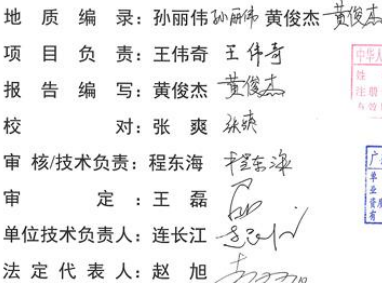 地质编录：孙丽伟 孙丽伟 黄俊杰 黄俊杰
项目负责：王伟奇 王伟奇
报告编写：黄俊杰 黄俊杰
校对：张爽 张爽
审核/技术负责：程东海 程东海
审定：王磊
单位技术负责人：连长江
法定代表人：赵旭
中华人
姓
注册
有效